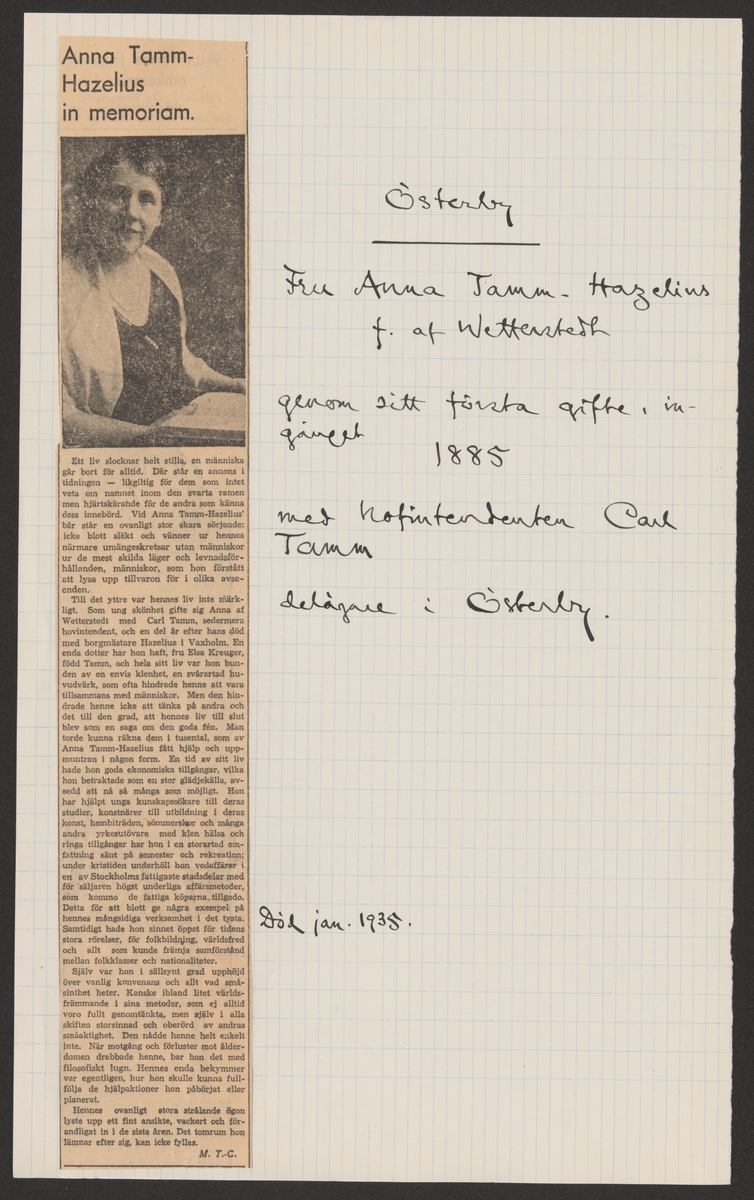 Anna Tamm-
Hazelius
in memoriam.
Ett liv slocknar helt stilla, en människa
går bort för alltid. Där står en annons i
tidningen — likgiltig för dem som intet
veta om namnet inom den svarta ramen
men hjärtskärande för de andra som känna
dess innebörd. Vid Anna Tamm-Hazelius'
bår står en ovanligt stor skara sörjande:
icke blott släkt och vänner ur hennes
närmare umängeskretsar utan människor
ur de mest skilda läger och levnadsför-
hållanden, människor, som hon förstått
att lysa upp tillvaron för i olika avse-
enden.
Till det yttre var hennes liv inte märk-
ligt. Som ung skönhet gifte sig Anna af
Wetterstedt med Carl Tamm, sedermera
hovintendent, och en del år efter hans död
med borgmästare Hazelius i Vaxholm. En
enda dotter har hon haft, fru Elsa Kreuger,
född Tamm, och hela sitt liv var hon bun-
den av en envis klenhet, en svårartad hu-
vudvärk, som ofta hindrade henne att vara
tillsammans med människor. Men den hin-
drade henne icke att tänka på andra och
det till den grad, att hennes liv till slut
blev som en saga om den goda fén. Man
torde kunna räkna dem i tusental, som av
Anna Tamm-Hazelius fått hjälp och upp-
muntran i någon form. En tid av sitt liv
hade hon goda ekonomiska tillgångar, vilka
hon betraktade som en stor glädjekälla, av-
sedd att nå så många som möjligt. Hon
har hjälpt unga kunskapssökare till deras
studier, konstnärer till utbildning i deras
konst, hembiträden, sömmerskor och många
andra yrkesutövare med klen hälsa och
ringa tillgångar har hon i en storartad om-
fattning sänt på semester och rekreation;
under kristiden underhöll hon vedaffärer i
en av Stockholms fattigaste stadsdelar med
för säljaren högst underliga affärsmetoder,
som kommo de fattiga köparna tillgodo.
Detta för att blott ge några exempel på
hennes mångsidiga verksamhet i det tysta.
Samtidigt hade hon sinnet öppet för tidens
stora rörelser, för folkbildning, världsfred
och allt som kunde främja samförstånd
mellan folkklasser och nationaliteter.
Själv var hon i sällsynt grad upphöjd
över vanlig konvenans och allt vad små-
sinthet heter. Kanske ibland litet världs-
främmande i sina metoder, som ej alltid
voro fullt genomtänkta, men själv i alla
skiften storsinnad och oberörd av andras
småaktighet. Den nådde henne helt enkelt
inte. När motgång och förluster mot ålder-
domen drabbade henne, bar hon det med
filosofiskt lugn. Hennes enda bekymmer
var egentligen, hur hon skulle kunna full-
följa de hjälpaktioner hon påbörjat eller
planerat.
Hennes ovanligt stora strålande ögon
lyste upp ett fint ansikte, vackert och för-
andligat in i de sista åren. Det tomrum hon
lämnar efter sig, kan icke fyllas.
M. T.-C.
Österby
Fru Anna Tamm-Hazelius
f. af Wetterstedt
genom sitt första gifte, in-
gånget
1885
med hofintendenten Carl
Tamm
delägare i Österby.
Död jan. 1935.